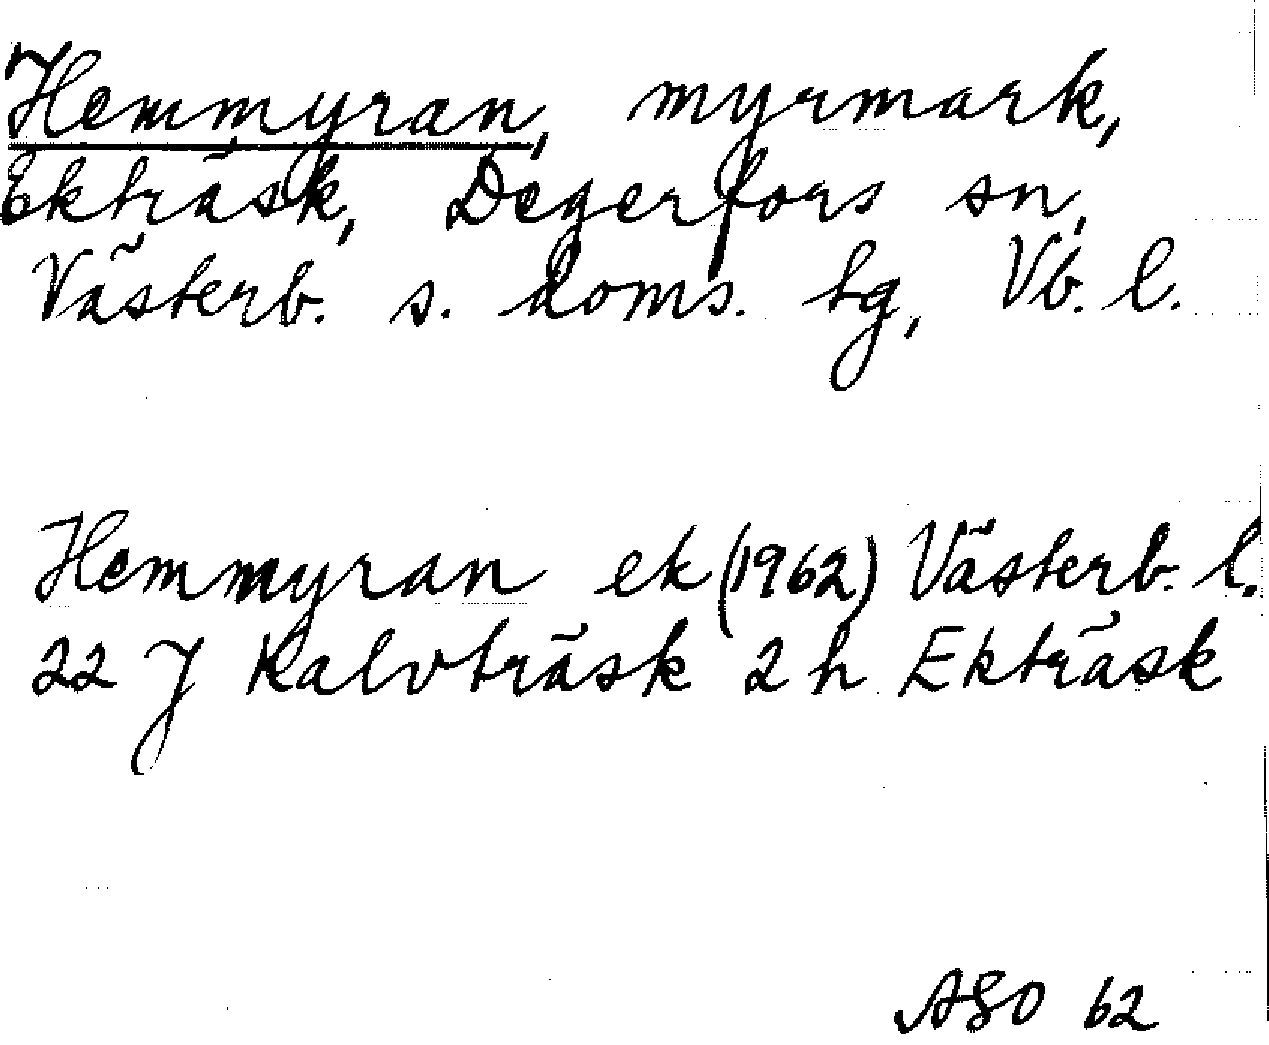 Hemmyran, myrmark,
Ekträsk, Degerfors sn,
Västerb. s. doms. tg, Vb. l.
Hemmyran ek (1962) Västerb. l.
22 J Kalvträsk 2 h Ekträsk
ASO 62